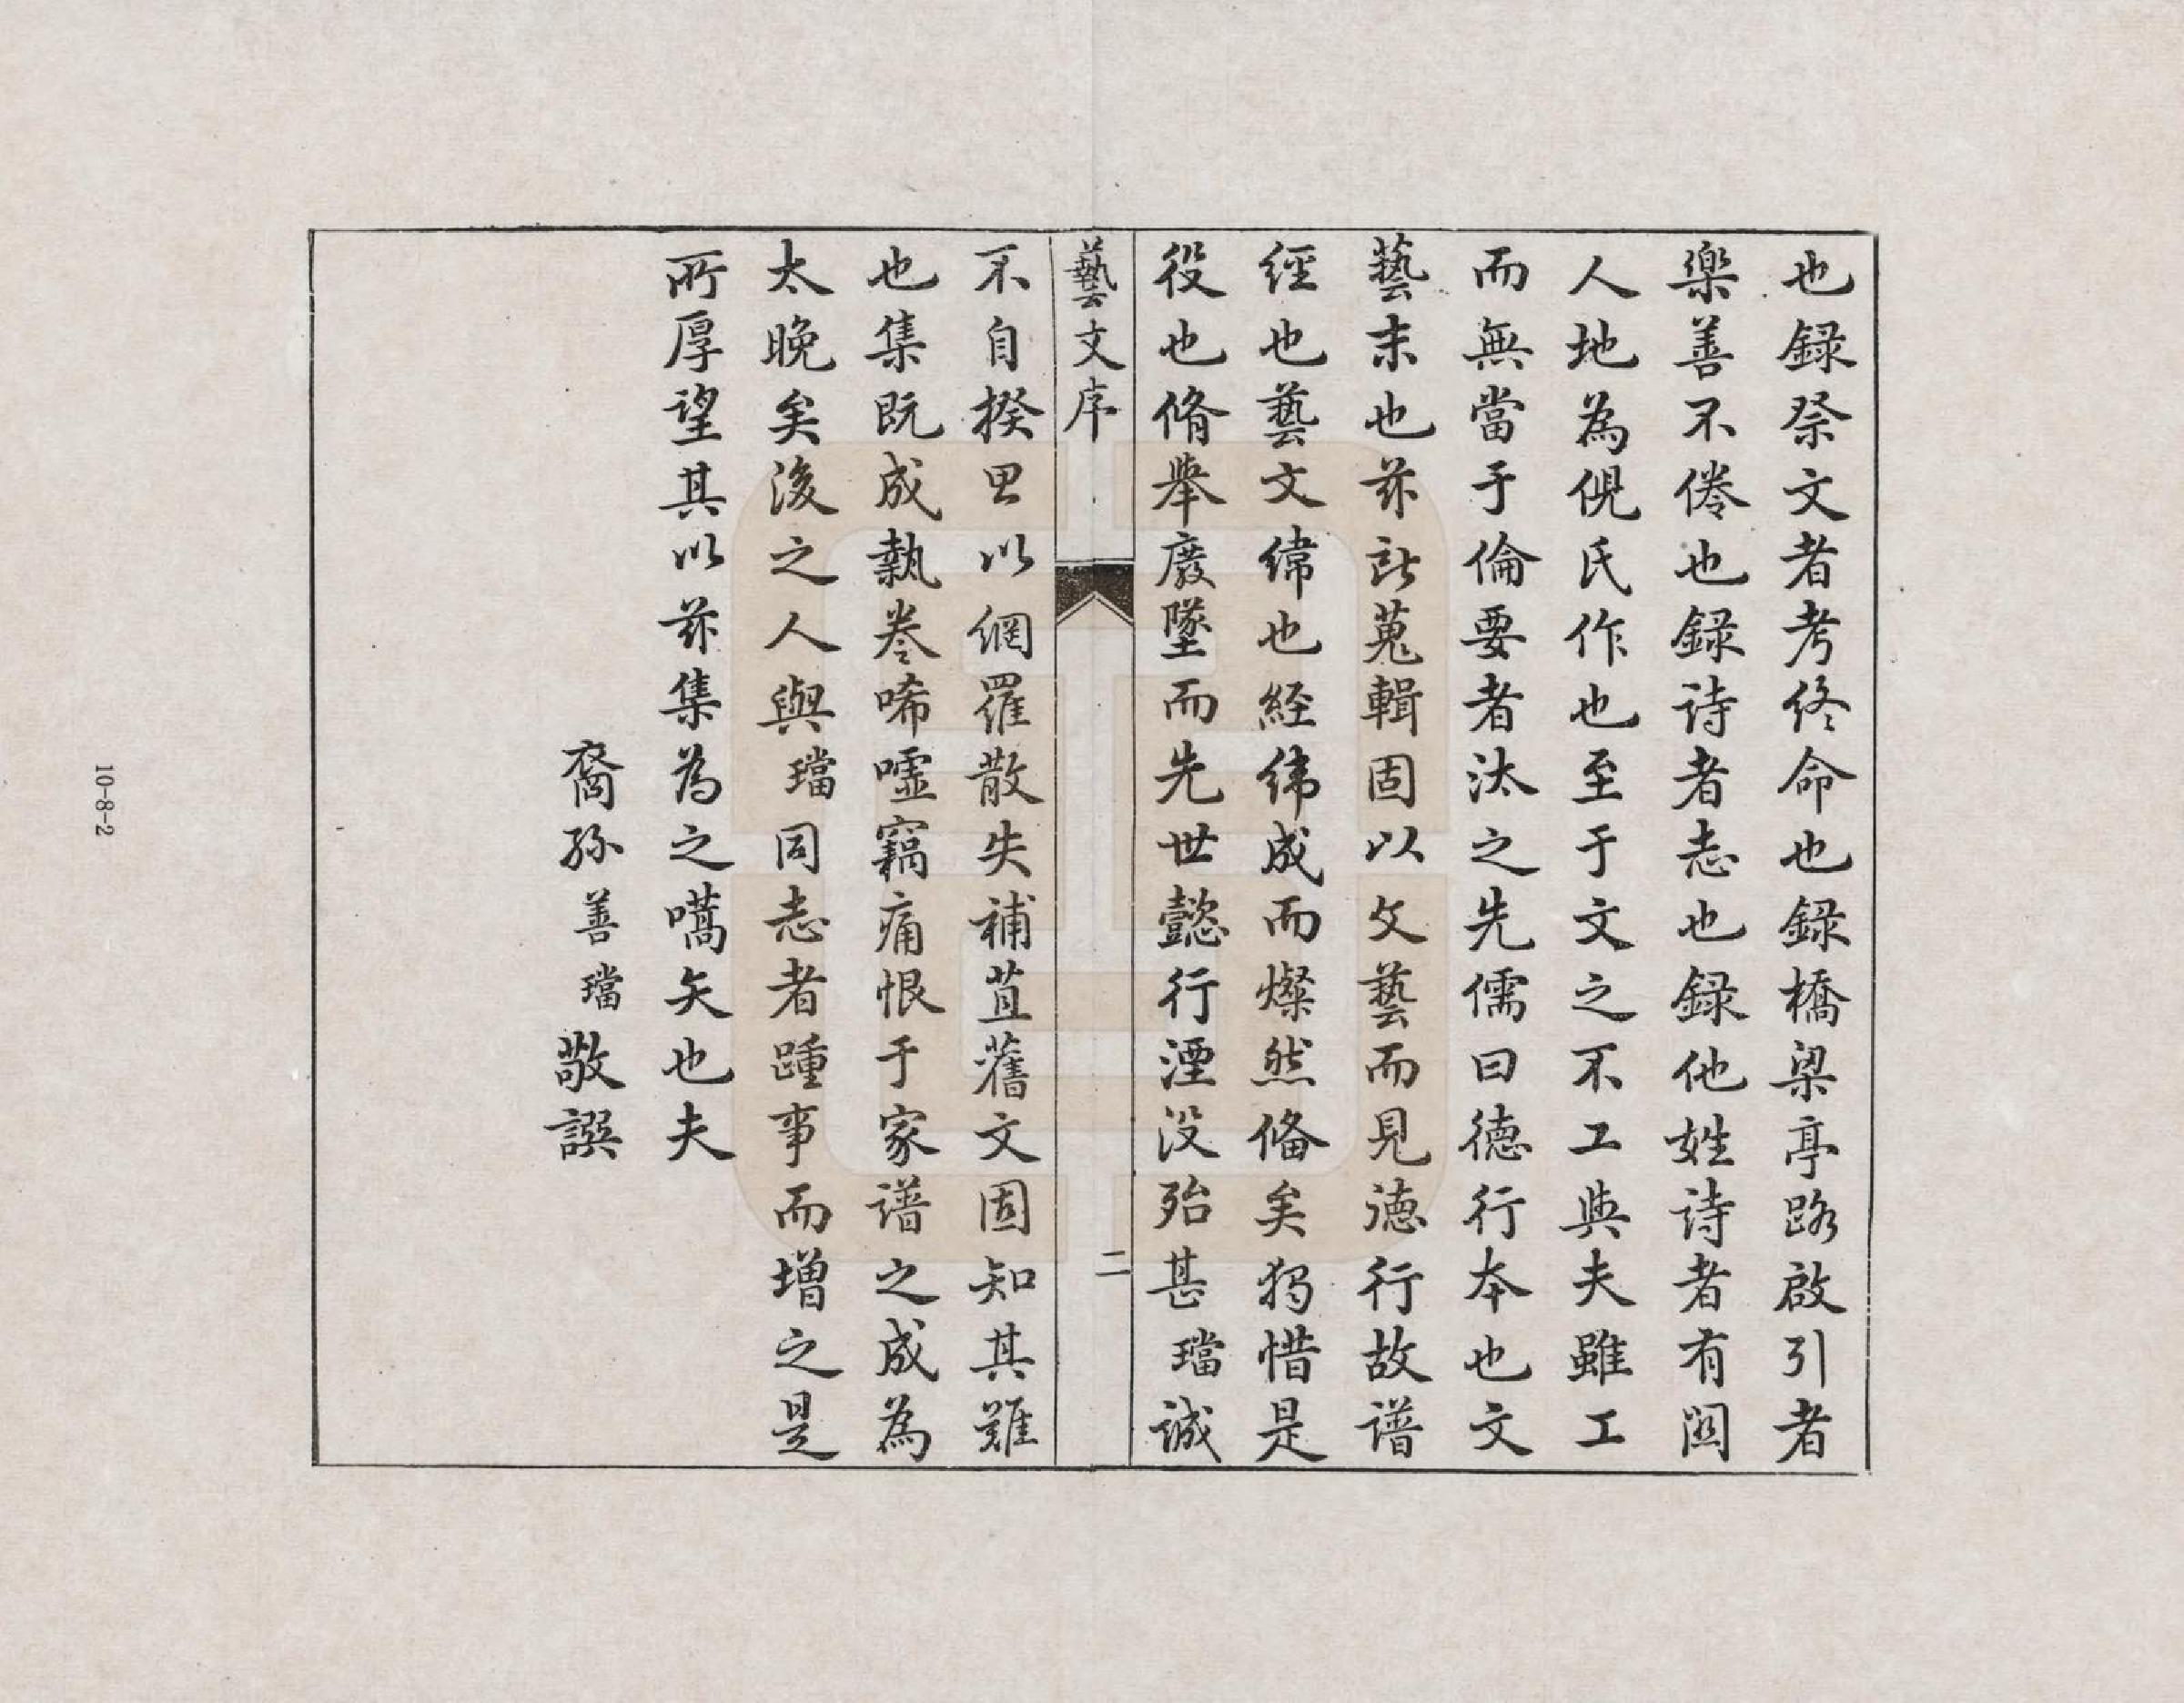 也録祭文者考终命也録橋梁亭路啟引者
樂善不倦也録诗者志也録他姓诗者有関
人地為倪氏作也至于文之不工與夫雖工
而無當于倫要者汰之先儒曰德行本也文
藝末也茲所蒐輯固以文藝而見德行故谱
經也藝文緯也經纬成而燦然備矣獨惜是
役也脩舉廢墜而先世懿行湮没殆甚璫誠
藝文序
二
不自揆思以網羅散失補苴舊文固知其難
也集既成執卷唏嘘竊痛恨于家谱之成為
太晚矣後之人與璫同志者踵事而增之是
所厚望其以茲集為之嚆矢也夫
裔孫善璫敬譔
10-8-2